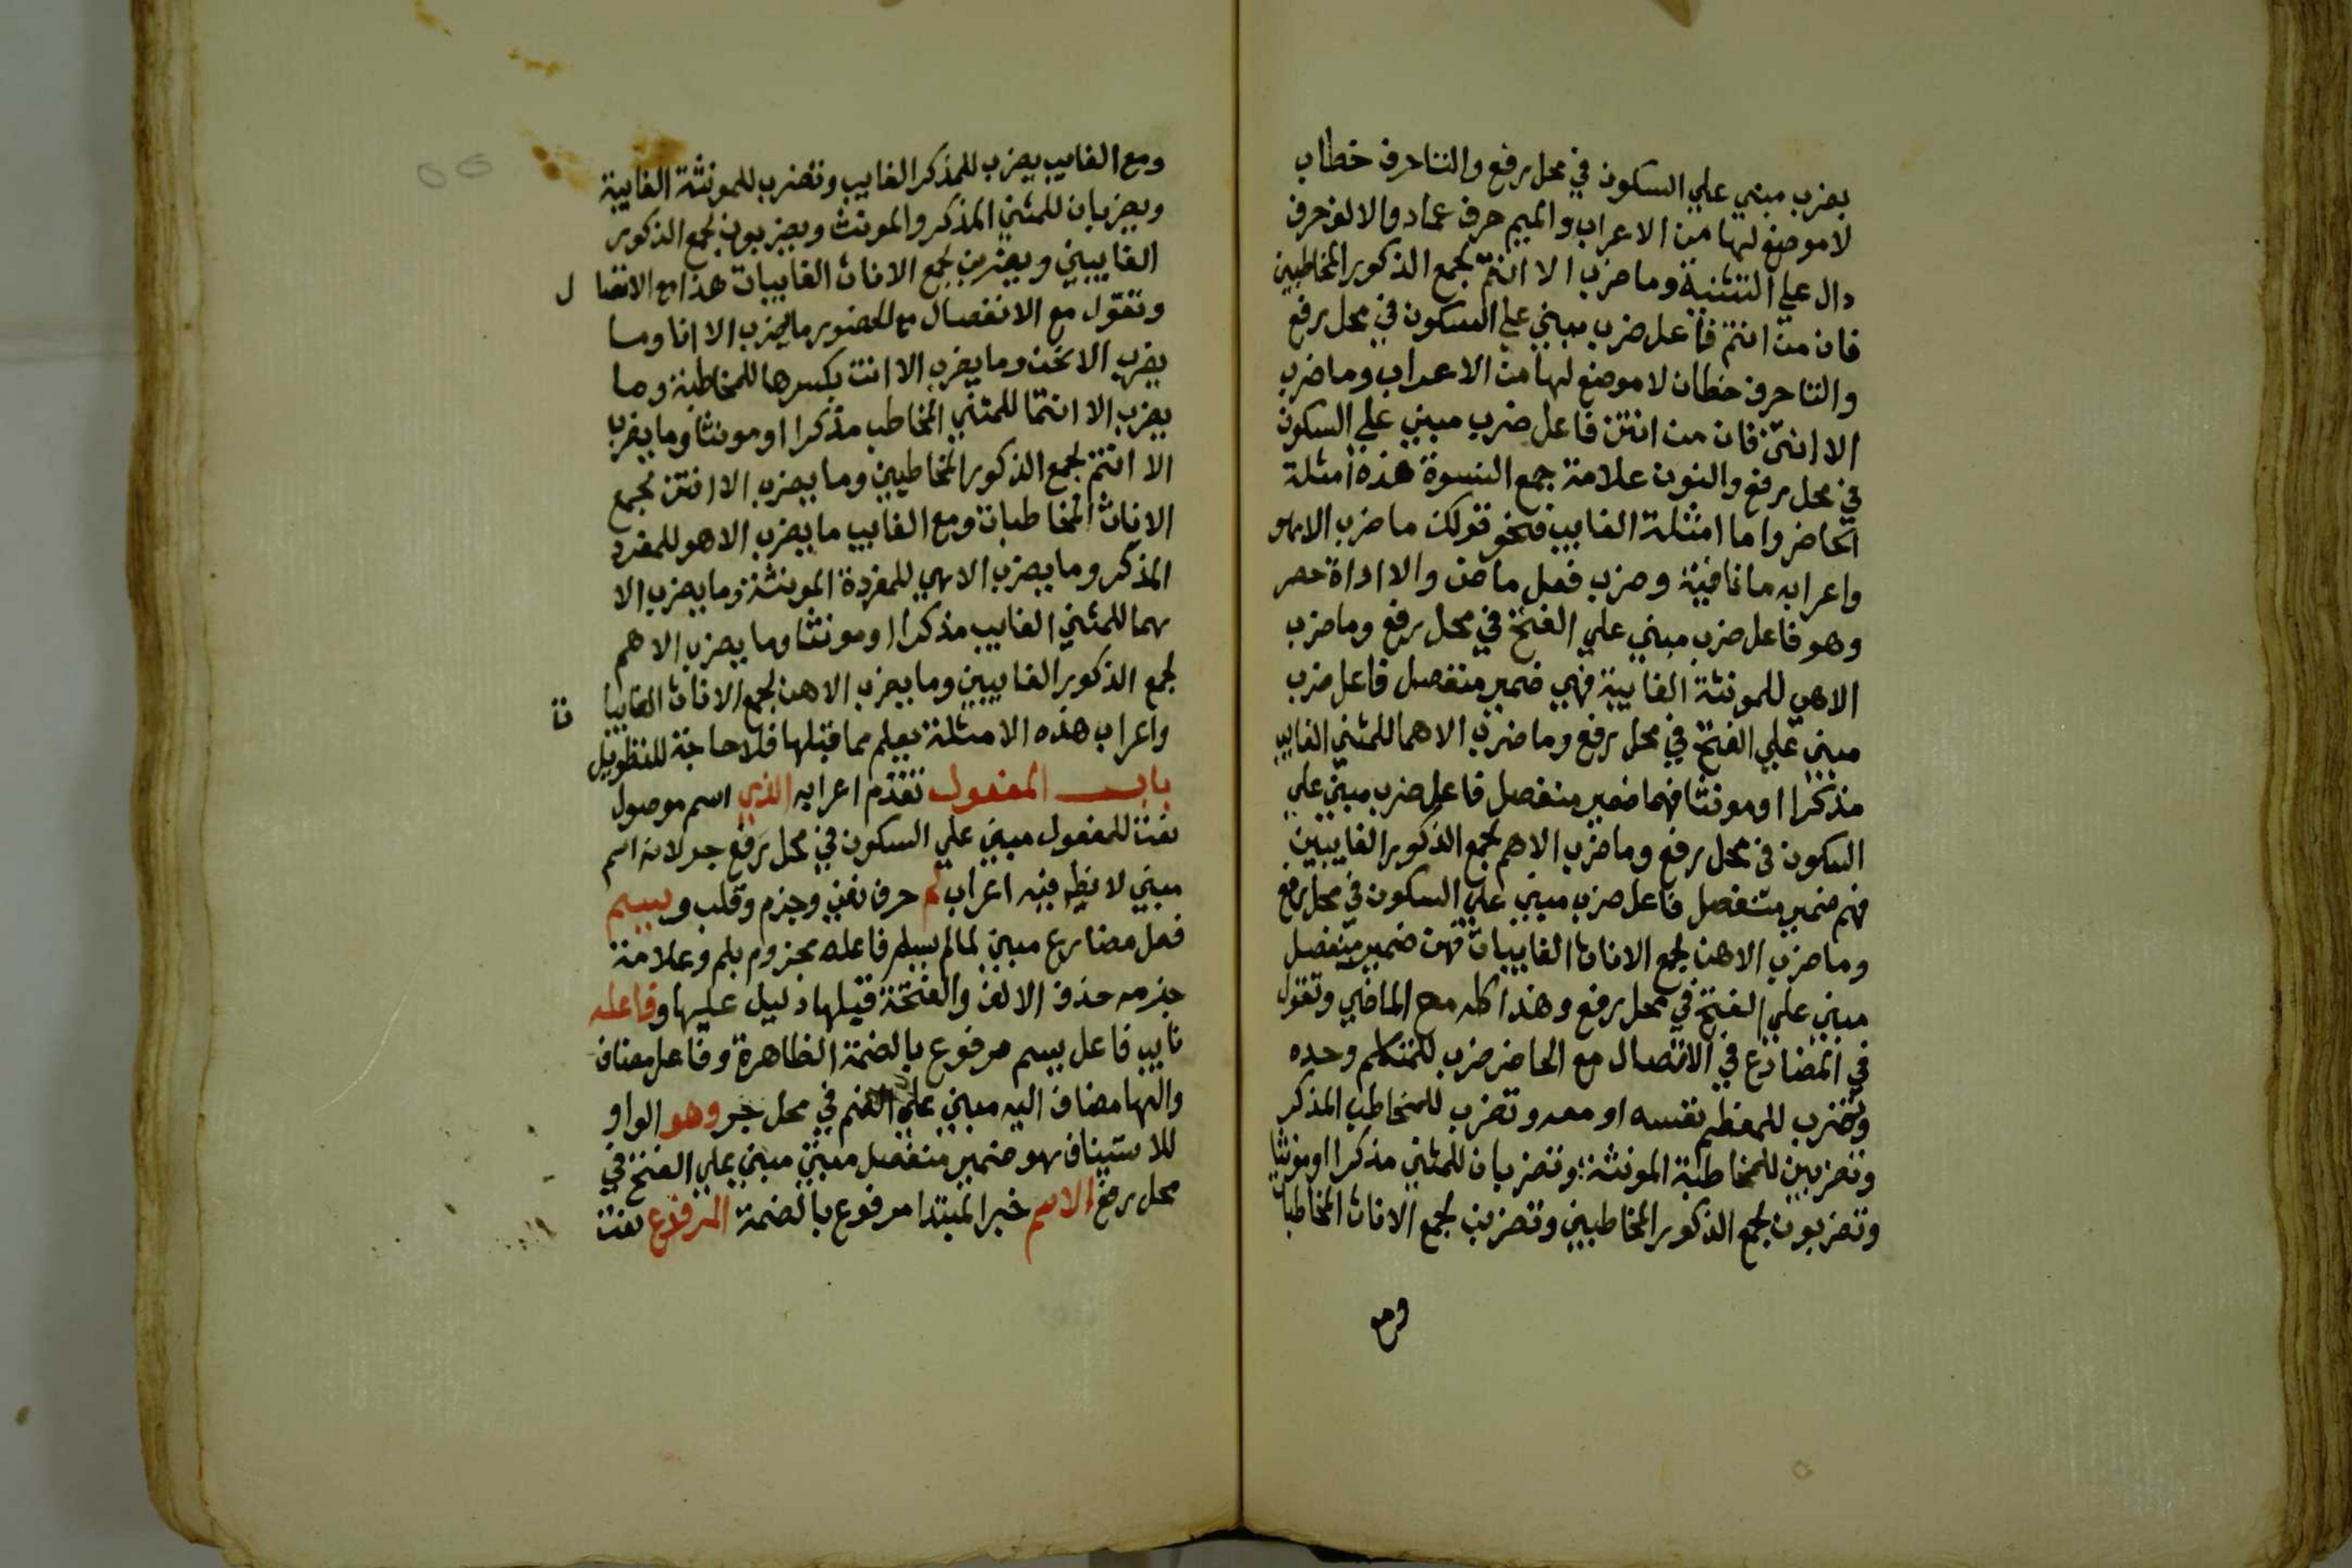 يضرب مبني علي السكون في محل رفع والتا حرف خطاب
لا موضع لها من الاعراب والميم حرف عماد والالف حرف
دال علي التثنية وما ضرب الا انتم لجمع الذكور المخاطبين
فان من انتم فاعل ضرب مبني علي السكون في محل رفع
والتا حرف خطاب لا موضع لها من الاعراب وما ضرب
الا انتن فان من انتن فاعل ضرب مبني علي السكون
في محل رفع والنون علامة جمع النسوة هذه امثلة
الحاضر واما امثلة الغايب فنحو قولك ما ضرب الا هو
واعرابه ما نافية وضرب فعل ماض والا اداة حصر
وهو فاعل ضرب مبني علي الفتح في محل رفع وما ضرب
الا هي للمونثة الغايبة فهي ضمير منفصل فاعل ضرب
مبني علي الفتح في محل رفع وما ضرب الا هما للمثني الغايب
مذكرا او مونثا فهما ضمير منفصل فاعل ضرب مبني علي
السكون في محل رفع وما ضرب الا هم لجمع الذكور الغايبين
فهم ضمير منفصل فاعل ضرب مبني علي السكون في محل رفع
وما ضرب الا هن لجمع الاناث الغايبات فهن ضمير منفصل
مبني علي الفتح في محل رفع وهذا كله مع الماضي وتقول
في المضارع في الاتصال مع الحاضر ضرب للمتكلم وحده
ونضرب للمعظم نفسه او معه وتضرب للمخاطب المذكر
وتضربين للمخاطبة المونثة وتضربان للمثني مذكرا او مونثا
وتضربون لجمع الذكور المخاطبين وتضربن لجمع الاناث المخاطبات
ومع
ومع الغايب يضرب للمذكر الغايب وتضرب للمونثة الغايبة
ويضربان للمثني المذكر والمونث ويضربون لجمع الذكور
الغايبين ويضربن لجمع الاناث الغايبات هذا مع الاتصال
وتقول مع الانفصال مع الحضور ما يضرب الا انا وما
يضرب الا نحن وما يضرب الا انت بكسرها للمخاطبة وما
يضرب الا انتما للمثني المخاطب مذكرا او مونثا وما يضرب
الا انتم لجمع الذكور المخاطبين وما يضرب الا انتن لجمع
الاناث المخاطبات ومع الغايب ما يضرب الا هو للمفرد
المذكر وما يضرب الا هي للمفردة المونثة وما يضرب الا
هما للمثني الغايب مذكرا او مونثا وما يضرب الا هم
لجمع الذكور الغايبين وما يضرب الا هن لجمع الاناث الغايبات
واعراب هذه الامثلة يعلم مما قبلها فلا حاجة للتطويل
باب المفعول تقدم اعرابه الذي اسم موصول
نعت للمفعول مبني علي السكون في محل رفع جر لانه اسم
مبني لا يظهر فيه اعراب لم حرف نفي وجزم وقلب ويسم
فعل مضارع مبني لما لم يسم فاعله مجزوم بلم وعلامة
جزمه حذف الالف والفتحة قبلها دليل عليها وفاعله
نايب فاعل يسم مرفوع بالضمة الظاهرة وفاعل مضاف
والها مضاف اليه مبني علي الضم في محل جر وهو الواو
للاستيناف هو ضمير منفصل مبني مبني علي الفتح في
محل رفع الاسم خبر المبتدا مرفوع بالضمة المرفوع نعت